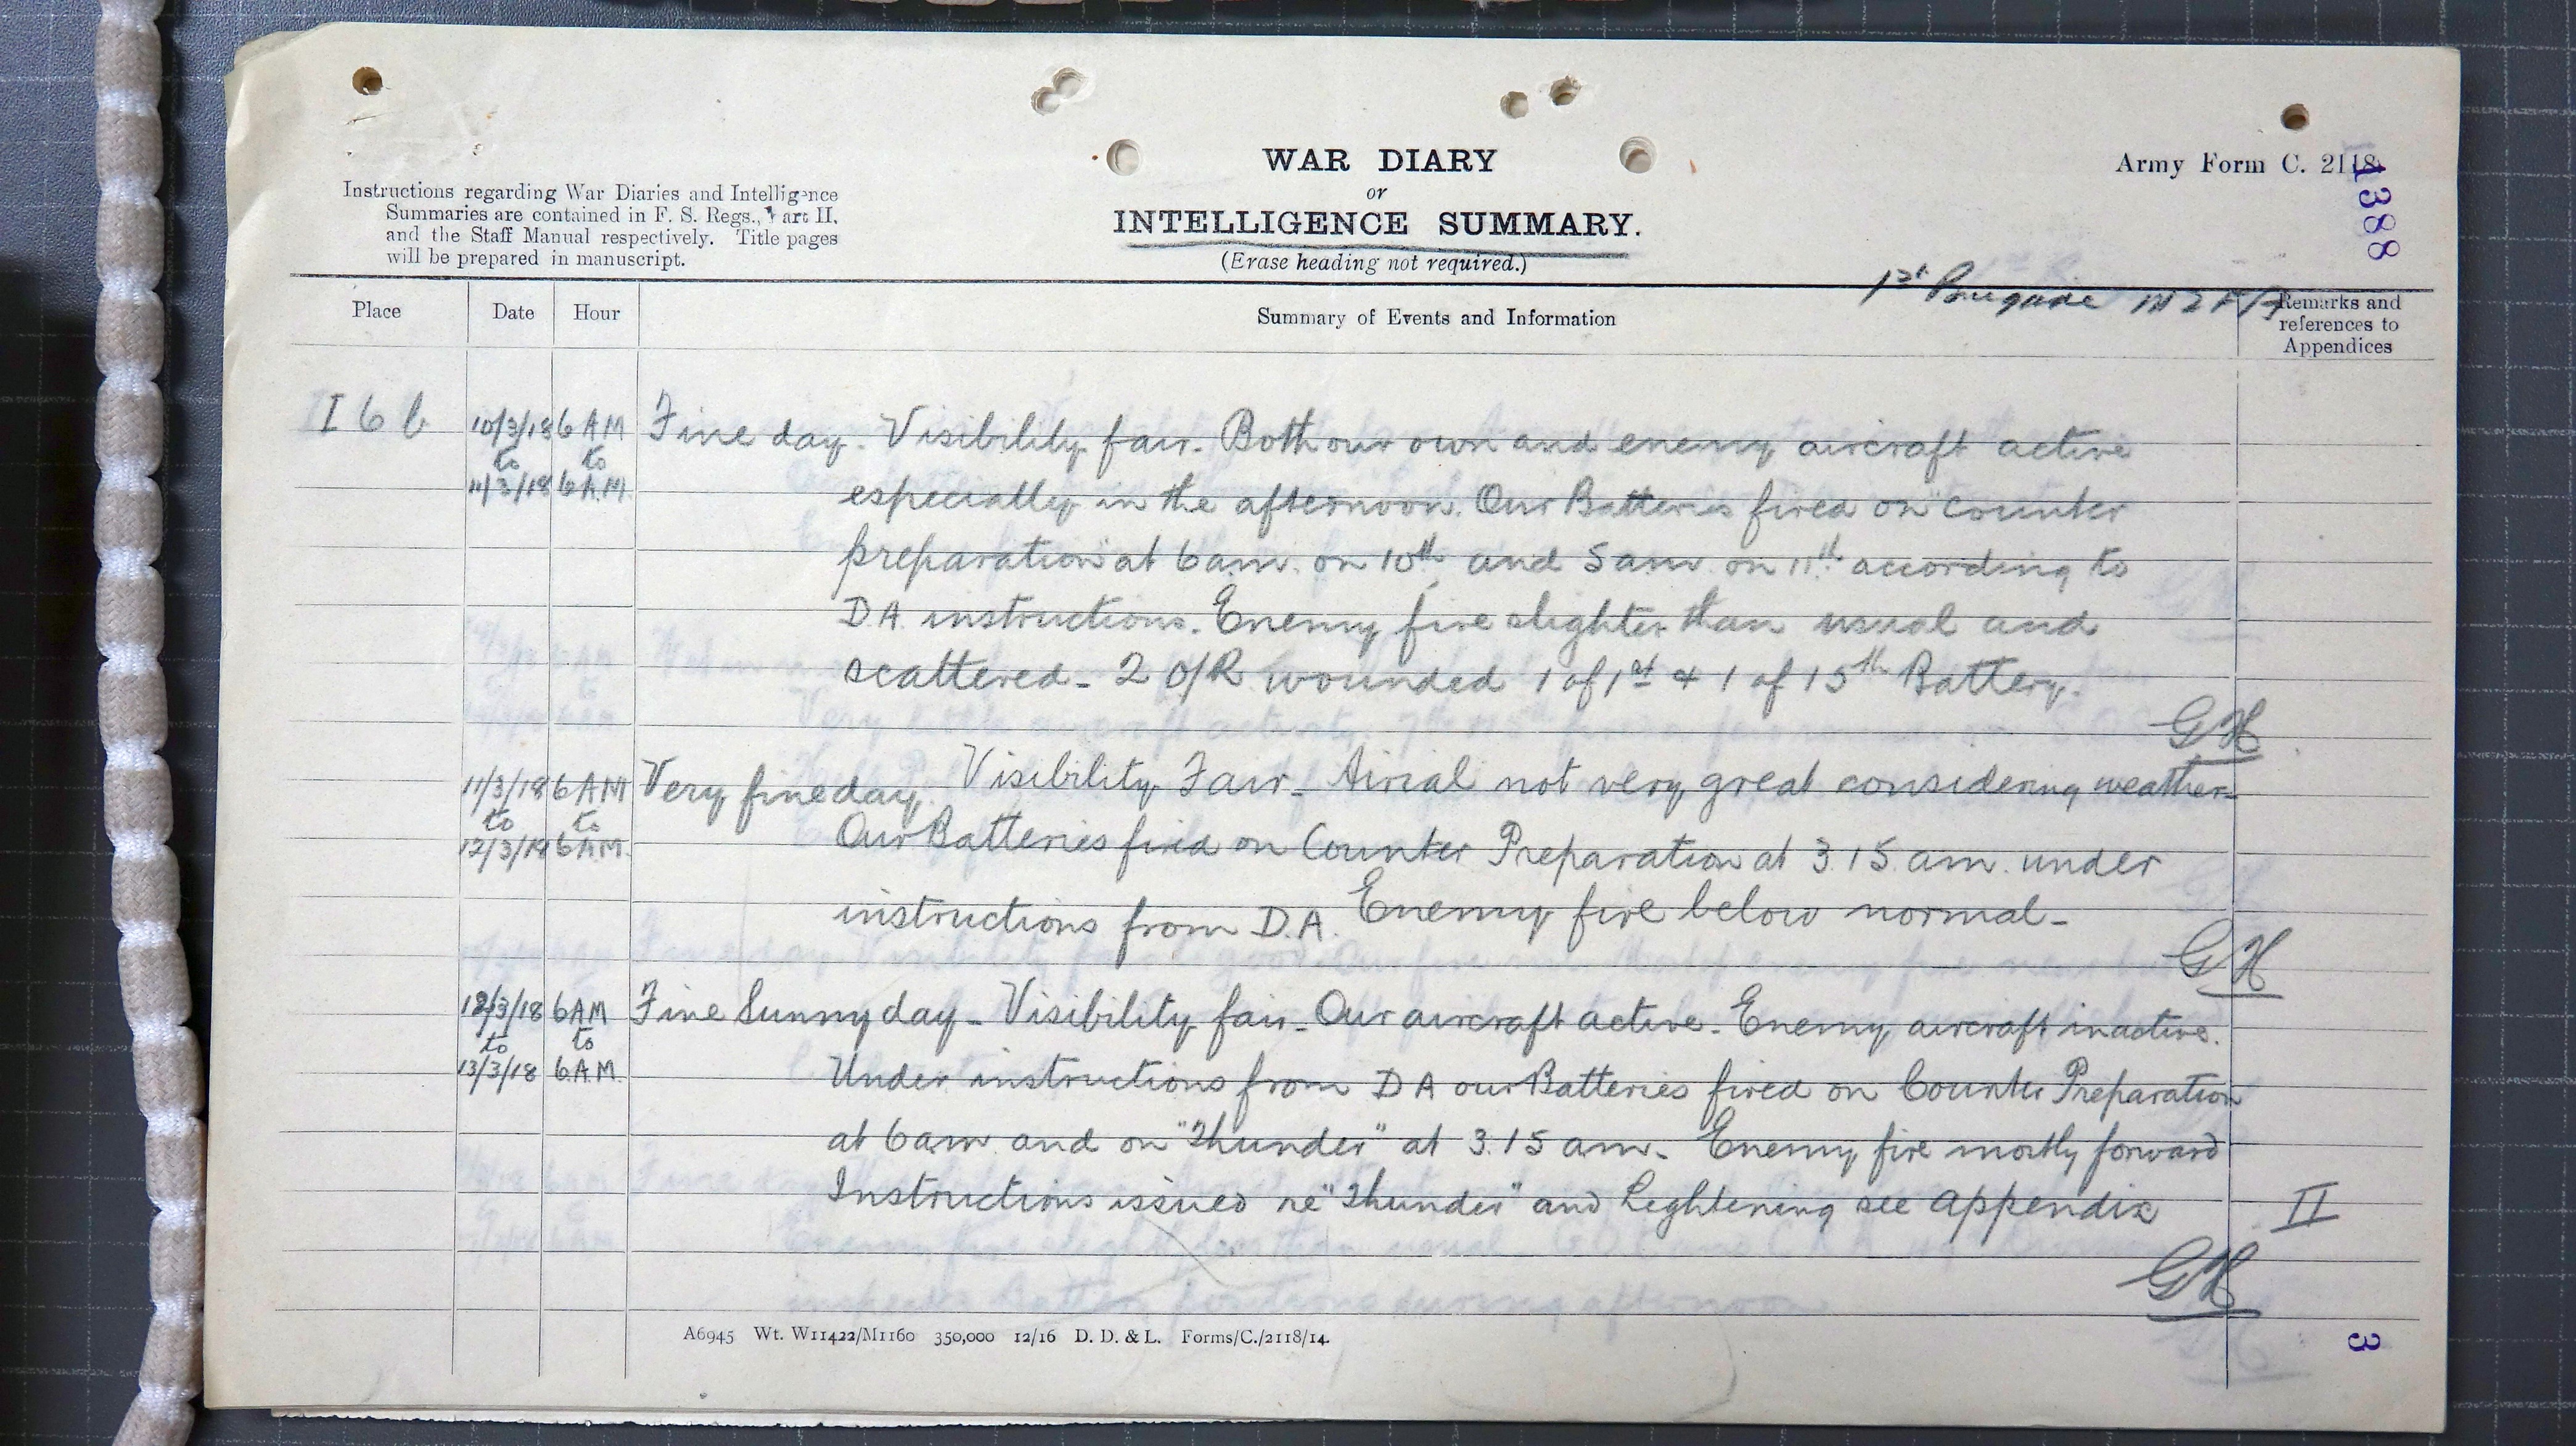 WAR DIARY
or
INTELLIGENCE SUMMARY.
(Erase heading not required.)
Instructions regarding War Diaries and Intelligence
Summaries are contained in F. S. Regs., Part II.
and the Staff Manual respectively. Title pages
will be prepared in manuscript.
Army Form C. 2118
1388
1st Brigade NZFA
Place Date Hour Summary of Events and Information Remarks and
references to
Appendices
I 6 b 10/3/18 6 AM Fine day. Visibility fair. Both our own and enemy aircraft active
to to
11/3/18 6 A.M. especially in the afternoon. Our Batteries fired on "counter
preparation" at 6 am. on 10th and 5 am. on 11th according to
D.A. instructions. Enemy fire slighter than usual and
scattered - 2 O/R wounded 1 of 1st & 1 of 15th Battery.
GH
11/3/18 6 AM Very fine day. Visibility Fair - Airial not very great considering weather -
to to
12/3/18 6 AM. Our Batteries fired on Counter Preparation at 3.15 am. under
instructions from D.A. Enemy fire below normal -
GH
12/3/18 6 AM Fine Sunny day - Visibility fair - Our aircraft active - Enemy aircraft inactive.
to to
13/3/18 6 A.M. Under instructions from D A our Batteries fired on Counter Preparation
at 6 am and on "Thunder" at 3.15 am - Enemy fire mostly forward
Instructions issued re "Thunder" and Lightening see appendix II
GH
A6945 Wt. W11422/M1160 350,000 12/16 D. D. & L. Forms/C./2118/14.
3